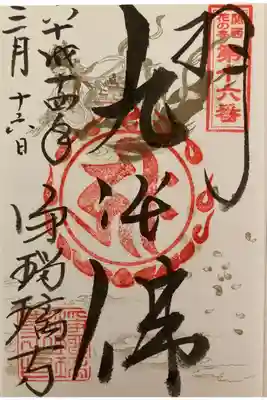 関西花の寺
第十六番
拝
九体佛
平成十四年
三月十六日
浄瑠璃寺